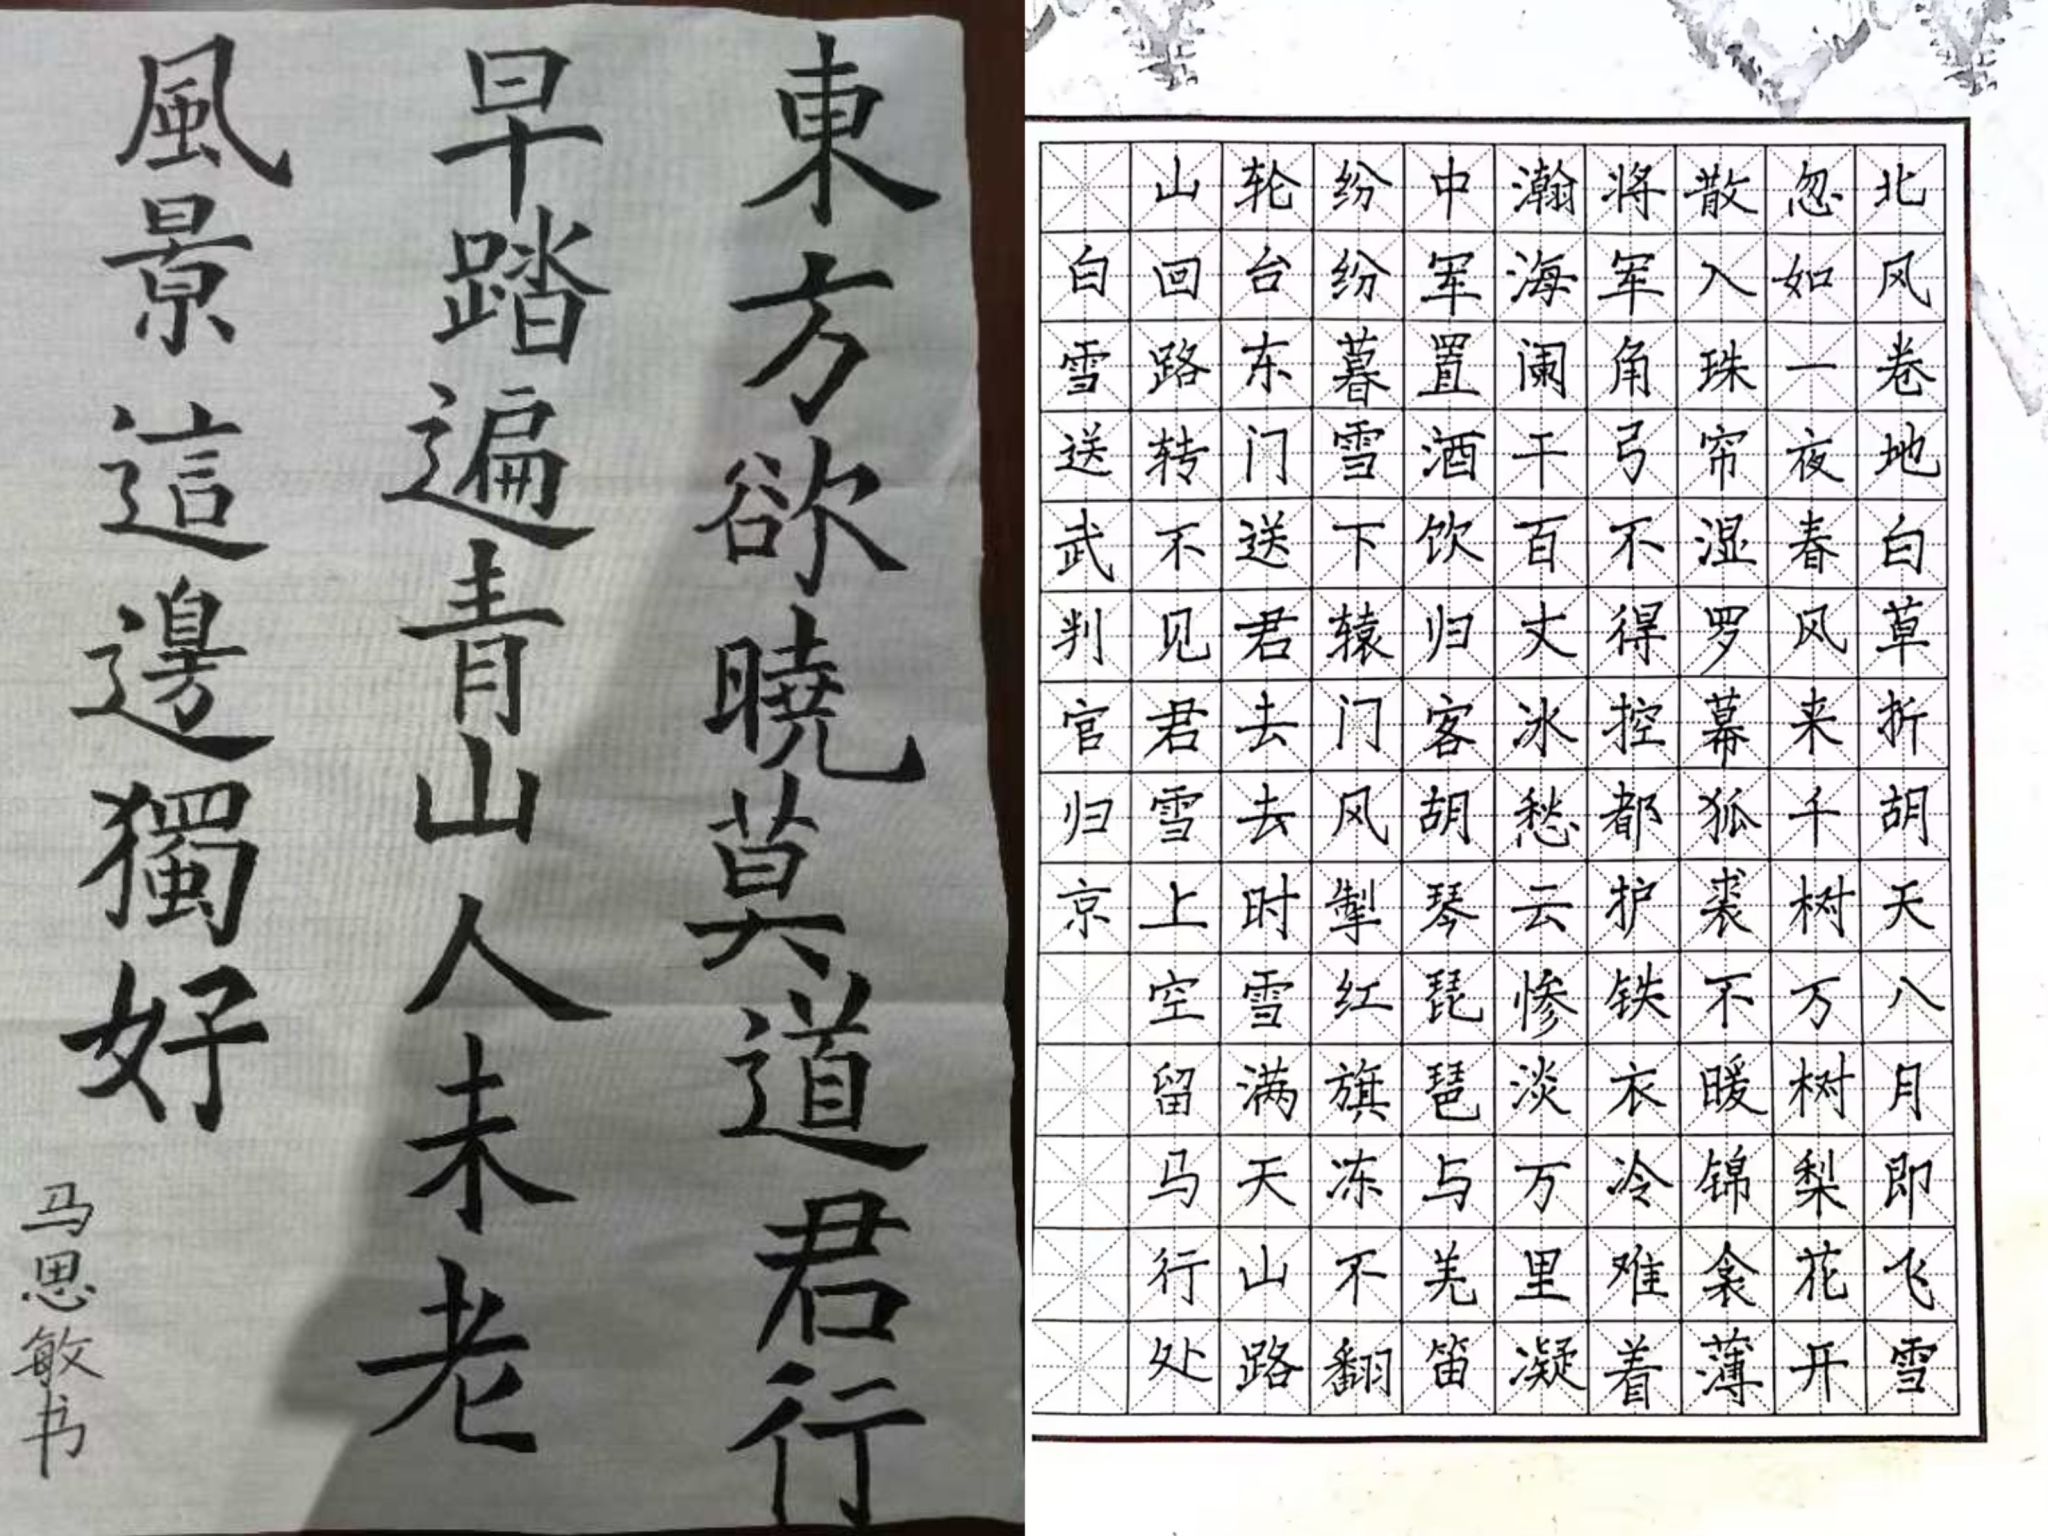 東方欲曉莫道君行
早踏遍青山人未老
風景這邊獨好
马思敏书
北风卷地白草折胡天八月即飞雪
忽如一夜春风来千树万树梨花开
散入珠帘湿罗幕狐裘不暖锦衾薄
将军角弓不得控都护铁衣冷难着
瀚海阑干百丈冰愁云惨淡万里凝
中军置酒饮归客胡琴琵琶与羌笛
纷纷暮雪下辕门风掣红旗冻不翻
轮台东门送君去去时雪满天山路
山回路转不见君雪上空留马行处
白雪送武判官归京